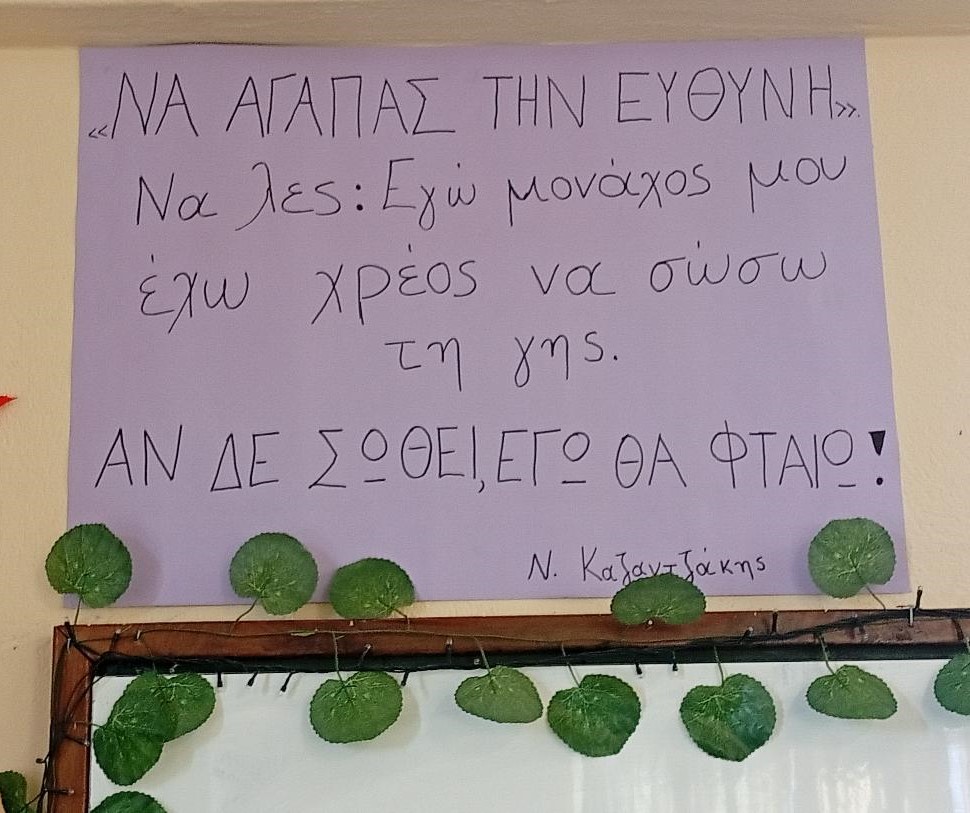 «ΝΑ ΑΓΑΠΑΣ ΤΗΝ ΕΥΘΥΝΗ».
Να λες: Εγώ μονάχος μου
έχω χρέος να σώσω
τη γης.
ΑΝ ΔΕ ΣΩΘΕΙ, ΕΓΩ ΘΑ ΦΤΑΙΩ!
Ν. Καζαντζάκης